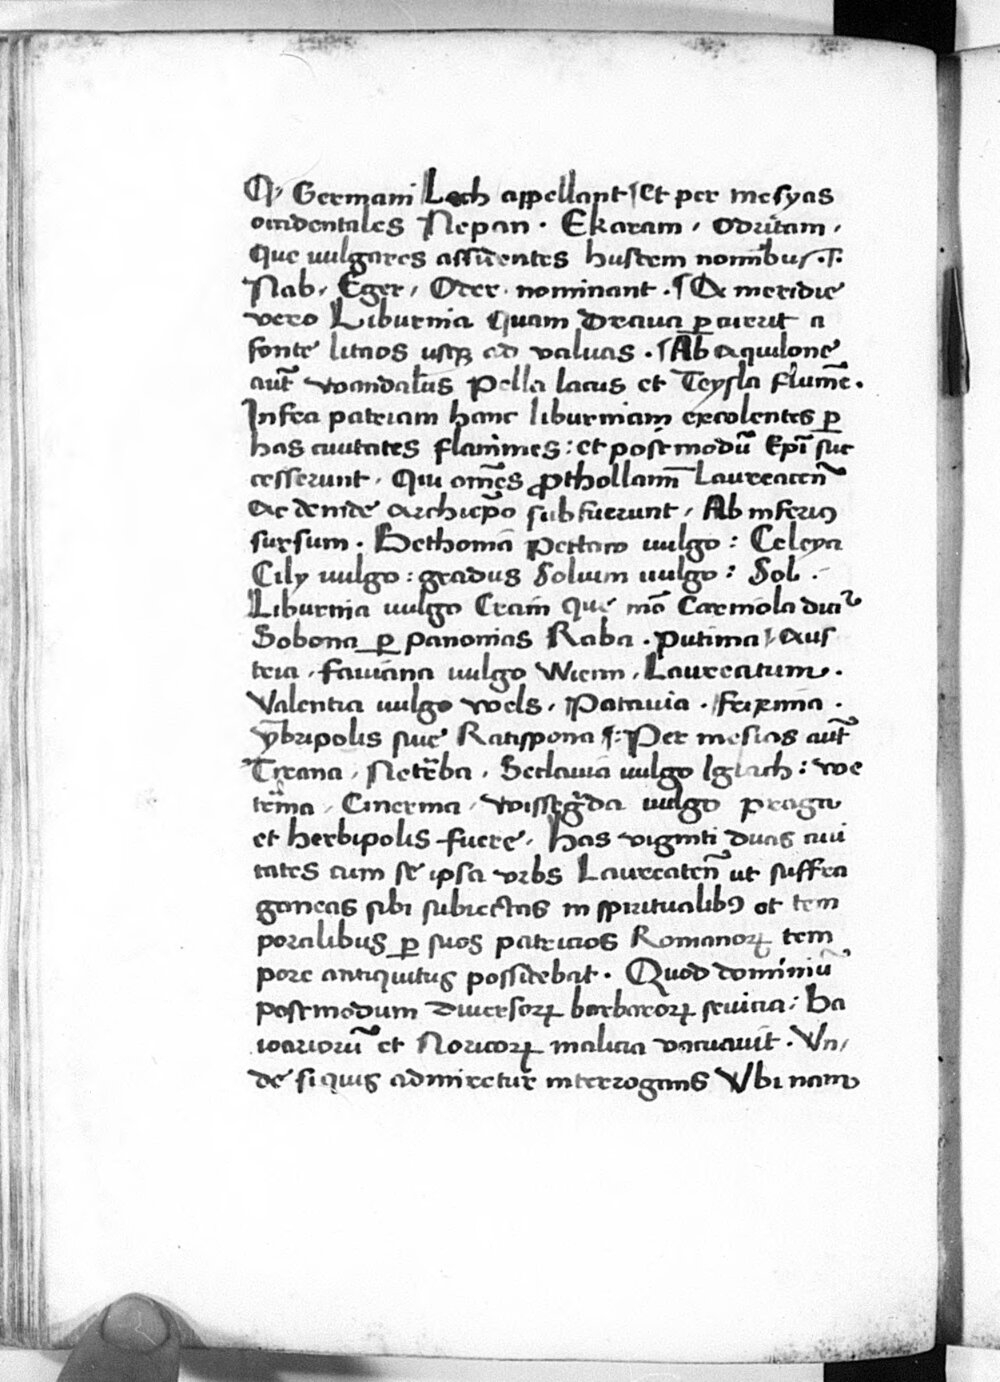 Q̷ Germani Lech appellant ¶ Et per mesyas
occidentales Nepan · Ekaram, Odritam,
Que uulgares assidentes hustem nomībus .¶.
Nab, Eger, Oder · nominant · ¶ A meridie
vero Liburnia Quam Draua ꝑ currit a
fonte litaos usqꝫ ad valuas · ¶ Ab aquilone
aut̄ wandalus Pella lacus et Teysla flumē.
Infra patriam hanc liburniam excolentes ꝑ
has ciuitates flamines : et postmodū Ep̄i suc
cesserunt · Qui om̄es ꝓthollam̄ Laureaceñ
Ac deinde Archiep̄o subfuerunt, Ab inferiꝯ
sursum · Bethomā Pettaw uulgo : Celeya
Cily uulgo : gradus Soluim uulgo : Sol ·
Liburnia uulgo Crain Que mō Carniola dūr
Sobona ꝑ panonias Raba · putima, Aus
tria, fauiana uulgo Wienn, Laureacum ·
Valentia uulgo wels, Patauia ·
ybripolis siue Ratispona ¶: Per mesias aut̄
Treana, Netrēba, Seclauia uulgo Iglach : we
Cinerma, Wissegrada uulgo praga
et herbipolis fuere, has viginti duas ciui
tates cum se ipsa vrbs Laureaceñ ut suffra
ganeas sibi subiectas in spiritualibꝯ et tem
poralibus ꝑ suos patricios Romanoꝝ tem
pore antiquitus possidebat · Quod dominiū
postmodum diuersoꝝ barbaroꝝ seuicia : Ba
ioarioru᷑ et Noricoꝝ malicia vacuauit · Vn/
de si quis admiretur interrogans Vbi nam